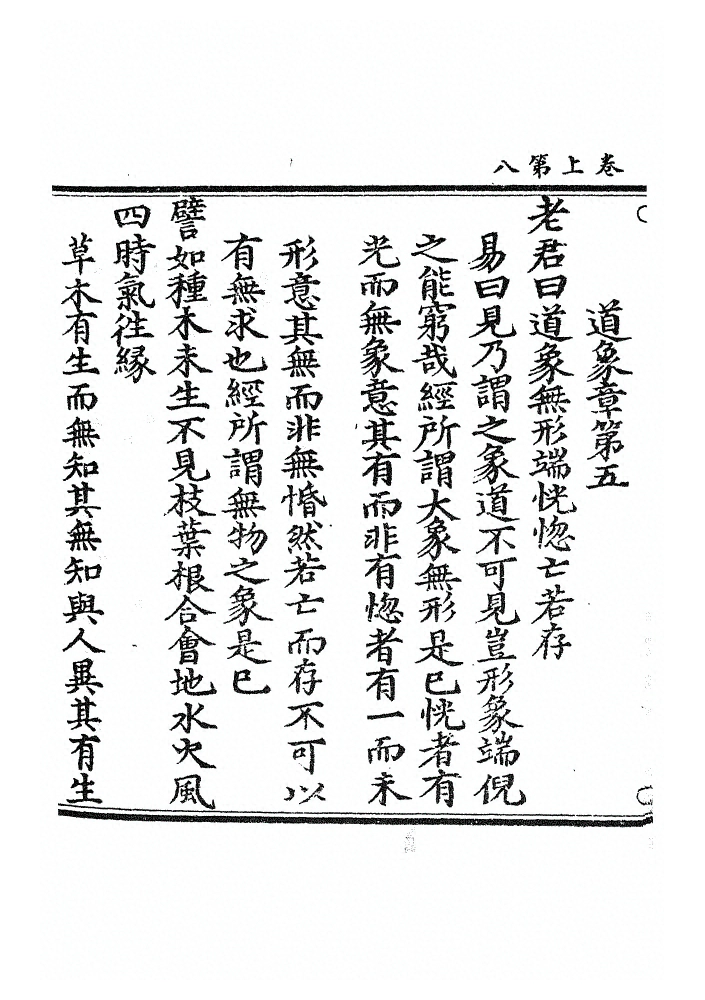 卷上第八
道象章第五
老君曰道象無形端恍惚亡若存
易曰見乃謂之象道不可見豈形象端倪
之能窮哉經所謂大象無形是巳恍者有
光而無象意其有而非有惚者有一而未
形意其無而非無惛然若亡而存不可以
有無求也經所謂無物之象是巳
譬如種木未生不見枝葉根合會地水火風
四時氣徃緣
草木有生而無知其無知與人異其有生